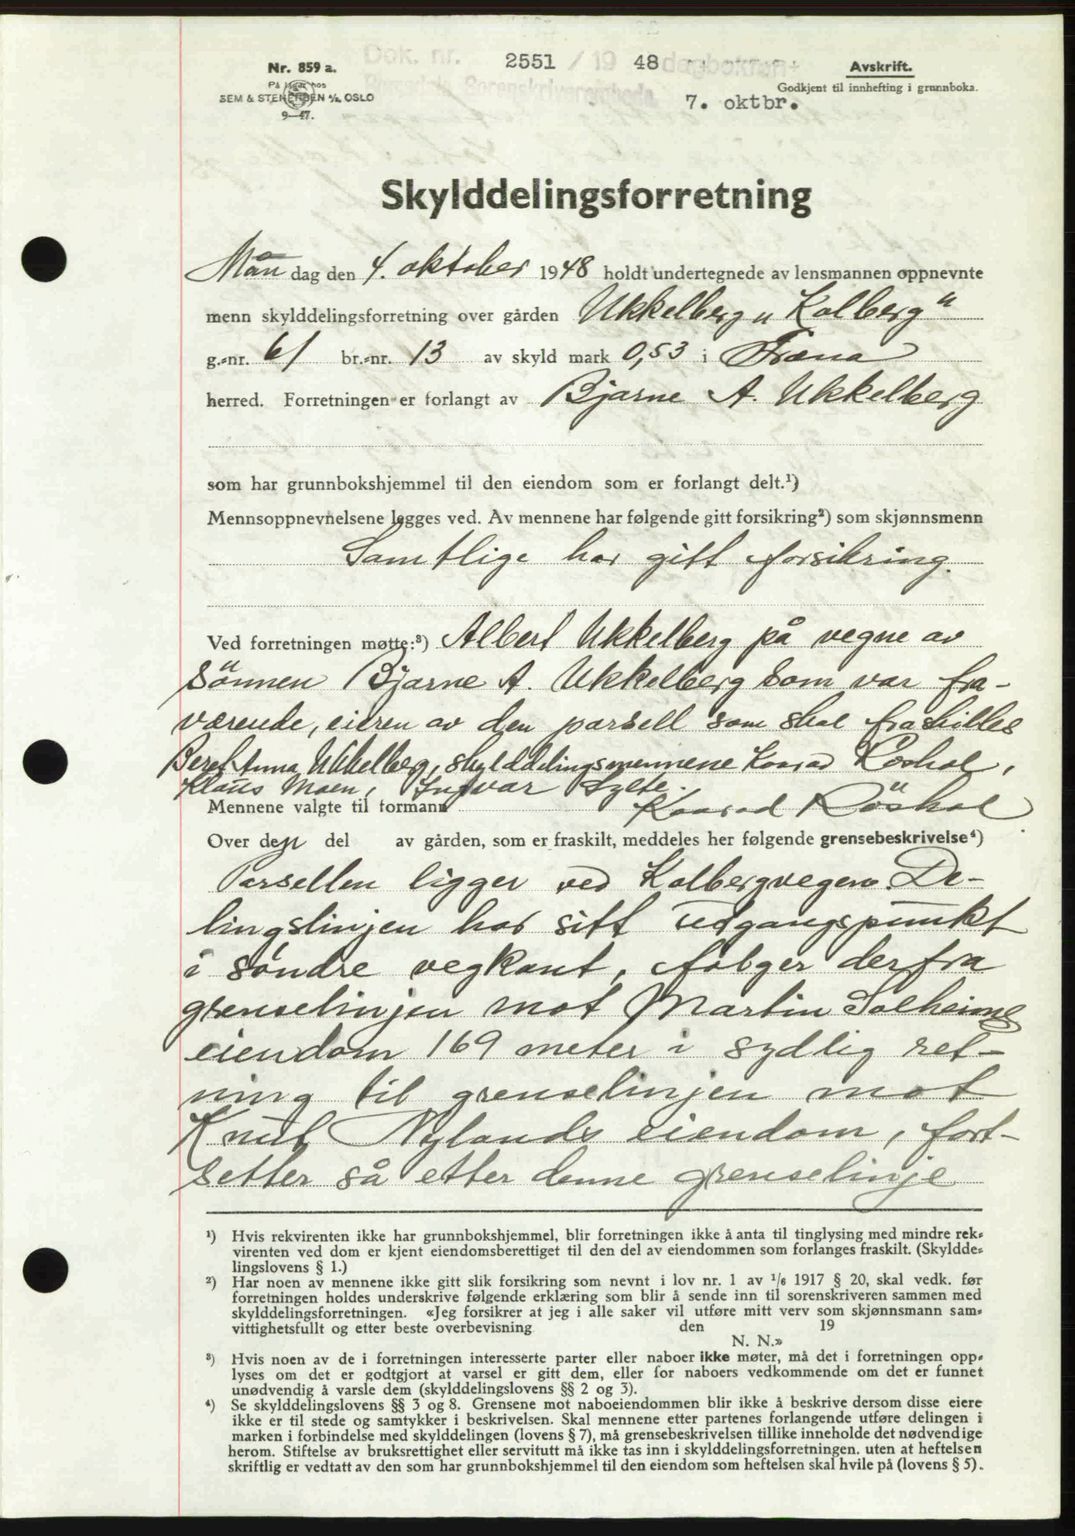 Dok. nr. 2551 / 19 48 dagbokført
Nr. 859 a.
På lager hos
SEM & STENERSEN A/S, OSLO
9—47.
Romsdal Sorenskriverembede
7. oktbr.
Avskrift.
Godkjent til innhefting i grunnboka.
Skylddelingsforretning
Mån dag den 4. oktober 1948 holdt undertegnede av lensmannen oppnevnte
menn skylddelingsforretning over gården Ukkelberg „Kolberg"
g.-nr. 61 br.-nr. 13 av skyld mark 0,53 i Fræna
herred. Forretningen er forlangt av Bjarne A. Ukkelberg
som har grunnbokshjemmel til den eiendom som er forlangt delt.¹)
Mennsoppnevnelsene legges ved. Av mennene har følgende gitt forsikring²) som skjønnsmenn
Samtlige har gitt forsikring.
Ved forretningen møtte:³) Albert Ukkelberg på vegne av
sönnen Bjarne A. Ukkelberg som var fra-
værende, eieren av den parsell som skal fraskilles
Beret Anna Ukkelberg, skylddelingsmennene Konrad Röshol,
Klaus Moen, Ingvar Sylte.
Mennene valgte til formann Konrad Röshol
Over den del av gården, som er fraskilt, meddeles her følgende grensebeskrivelse⁴)
Parsellen ligger ved Kolbergvegen. De-
lingslinjen har sitt udgangspunkt
i søndre vegkant, følger derfra
grenselinjen mot Martin Solheims
eiendom 169 meter i sydlig ret-
ning til grenselinjen mot
Knut Nylands eiendom, fort-
setter så etter denne grenselinje
¹) Hvis rekvirenten ikke har grunnbokshjemmel, blir forretningen ikke å anta til tinglysing med mindre rek-
virenten ved dom er kjent eiendomsberettiget til den del av eiendommen som forlanges fraskilt. (Skyldde-
lingslovens § 1.)
²) Har noen av mennene ikke gitt slik forsikring som nevnt i lov nr. 1 av 1/6 1917 § 20, skal vedk. før
forretningen holdes underskrive følgende erklæring som blir å sende inn til sorenskriveren sammen med
skylddelingsforretningen. «Jeg forsikrer at jeg i alle saker vil utføre mitt verv som skjønnsmann sam-
vittighetsfullt og etter beste overbevisning den 19
N. N.»
³) Hvis noen av de i forretningen interesserte parter eller naboer ikke møter, må det i forretningen opp-
lyses om det er godtgjort at varsel er gitt dem, eller for naboers vedkommende om det er funnet
unødvendig å varsle dem (skylddelingslovens §§ 2 og 3).
⁴) Se skylddelingslovens §§ 3 og 8. Grensene mot naboeiendommen blir ikke å beskrive dersom disse eiere
ikke er til stede og samtykker i beskrivelsen. Skal mennene etter partenes forlangende utføre delingen i
marken i forbindelse med skylddelingen (lovens § 7), må grensebeskrivelsen tillike inneholde det nødvendige
herom. Stiftelse av bruksrettighet eller servitutt må ikke tas inn i skylddelingsforretningen, uten at heftelsen
skriftlig er vedtatt av den som har grunnbokshjemmel til den eiendom som heftelsen skal hvile på (lovens § 5).